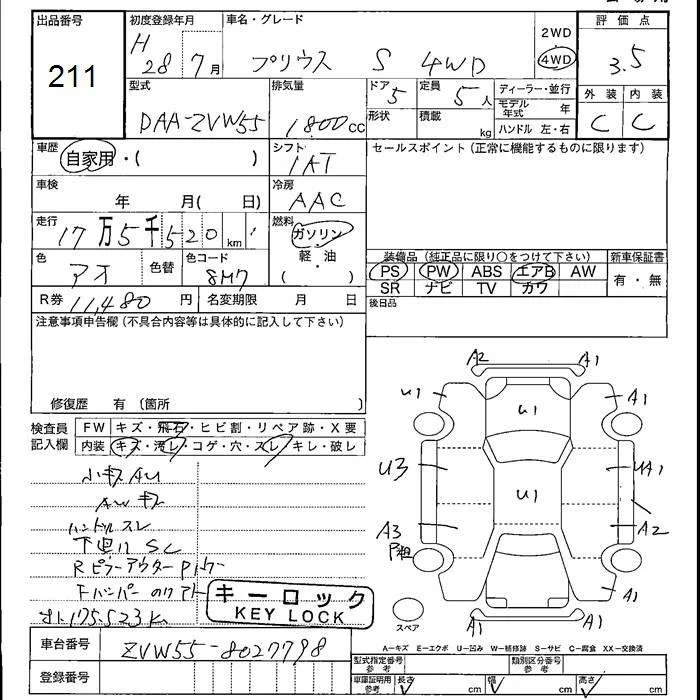 出品番号
211
初度登録年月
H 28年 7月
車名・グレード
プリウス S 4WD
2WD
4WD
評価点
3.5
外装 内装
C C
型式
DAA-ZVW55
排気量
1800cc
ドア 5
形状
定員 5人
積載 kg
ディーラー・並行
モデル年式 年
ハンドル 左・右
車歴
自家用・( )
シフト
IAT
セールスポイント(正常に機能するものに限ります)
車検
年 月( 日)
冷房
AAC
走行
17万5千520km
燃料
ガソリン
軽油
( )
色
アオ
色替
色コード
8M7
装備品(純正品に限り○をつけて下さい)
新車保証書
PS PW ABS エアB AW
SR ナビ TV カワ
有・無
R券 11,480円
名変期限 月 日
後日品
注意事項申告欄(不具合内容等は具体的に記入して下さい)
修復歴 有 〔箇所 〕
検査員記入欄
FW キズ・飛石・ヒビ割・リペア跡・X要
内装 キズ・汚レ・コゲ・穴・スレ・キレ・破レ
小キズAU
AWキズ
ハンドルスレ
下回りSC
Rピラーアウター
Fバンパー
175,523K
キーロック
KEY LOCK
A2
A1
U1
A1
U1
U3
U1
A1
A3
A2
A1
A1
A1
スペア
A=キズ E=エクボ U=凹み W=補修跡 S=サビ C=腐食 XX=交換済
車台番号
ZVW55-8027798
登録番号
型式指定番号 参考
類別区分番号 参考
車庫証明用 参考
長さ cm
幅 cm
高さ cm